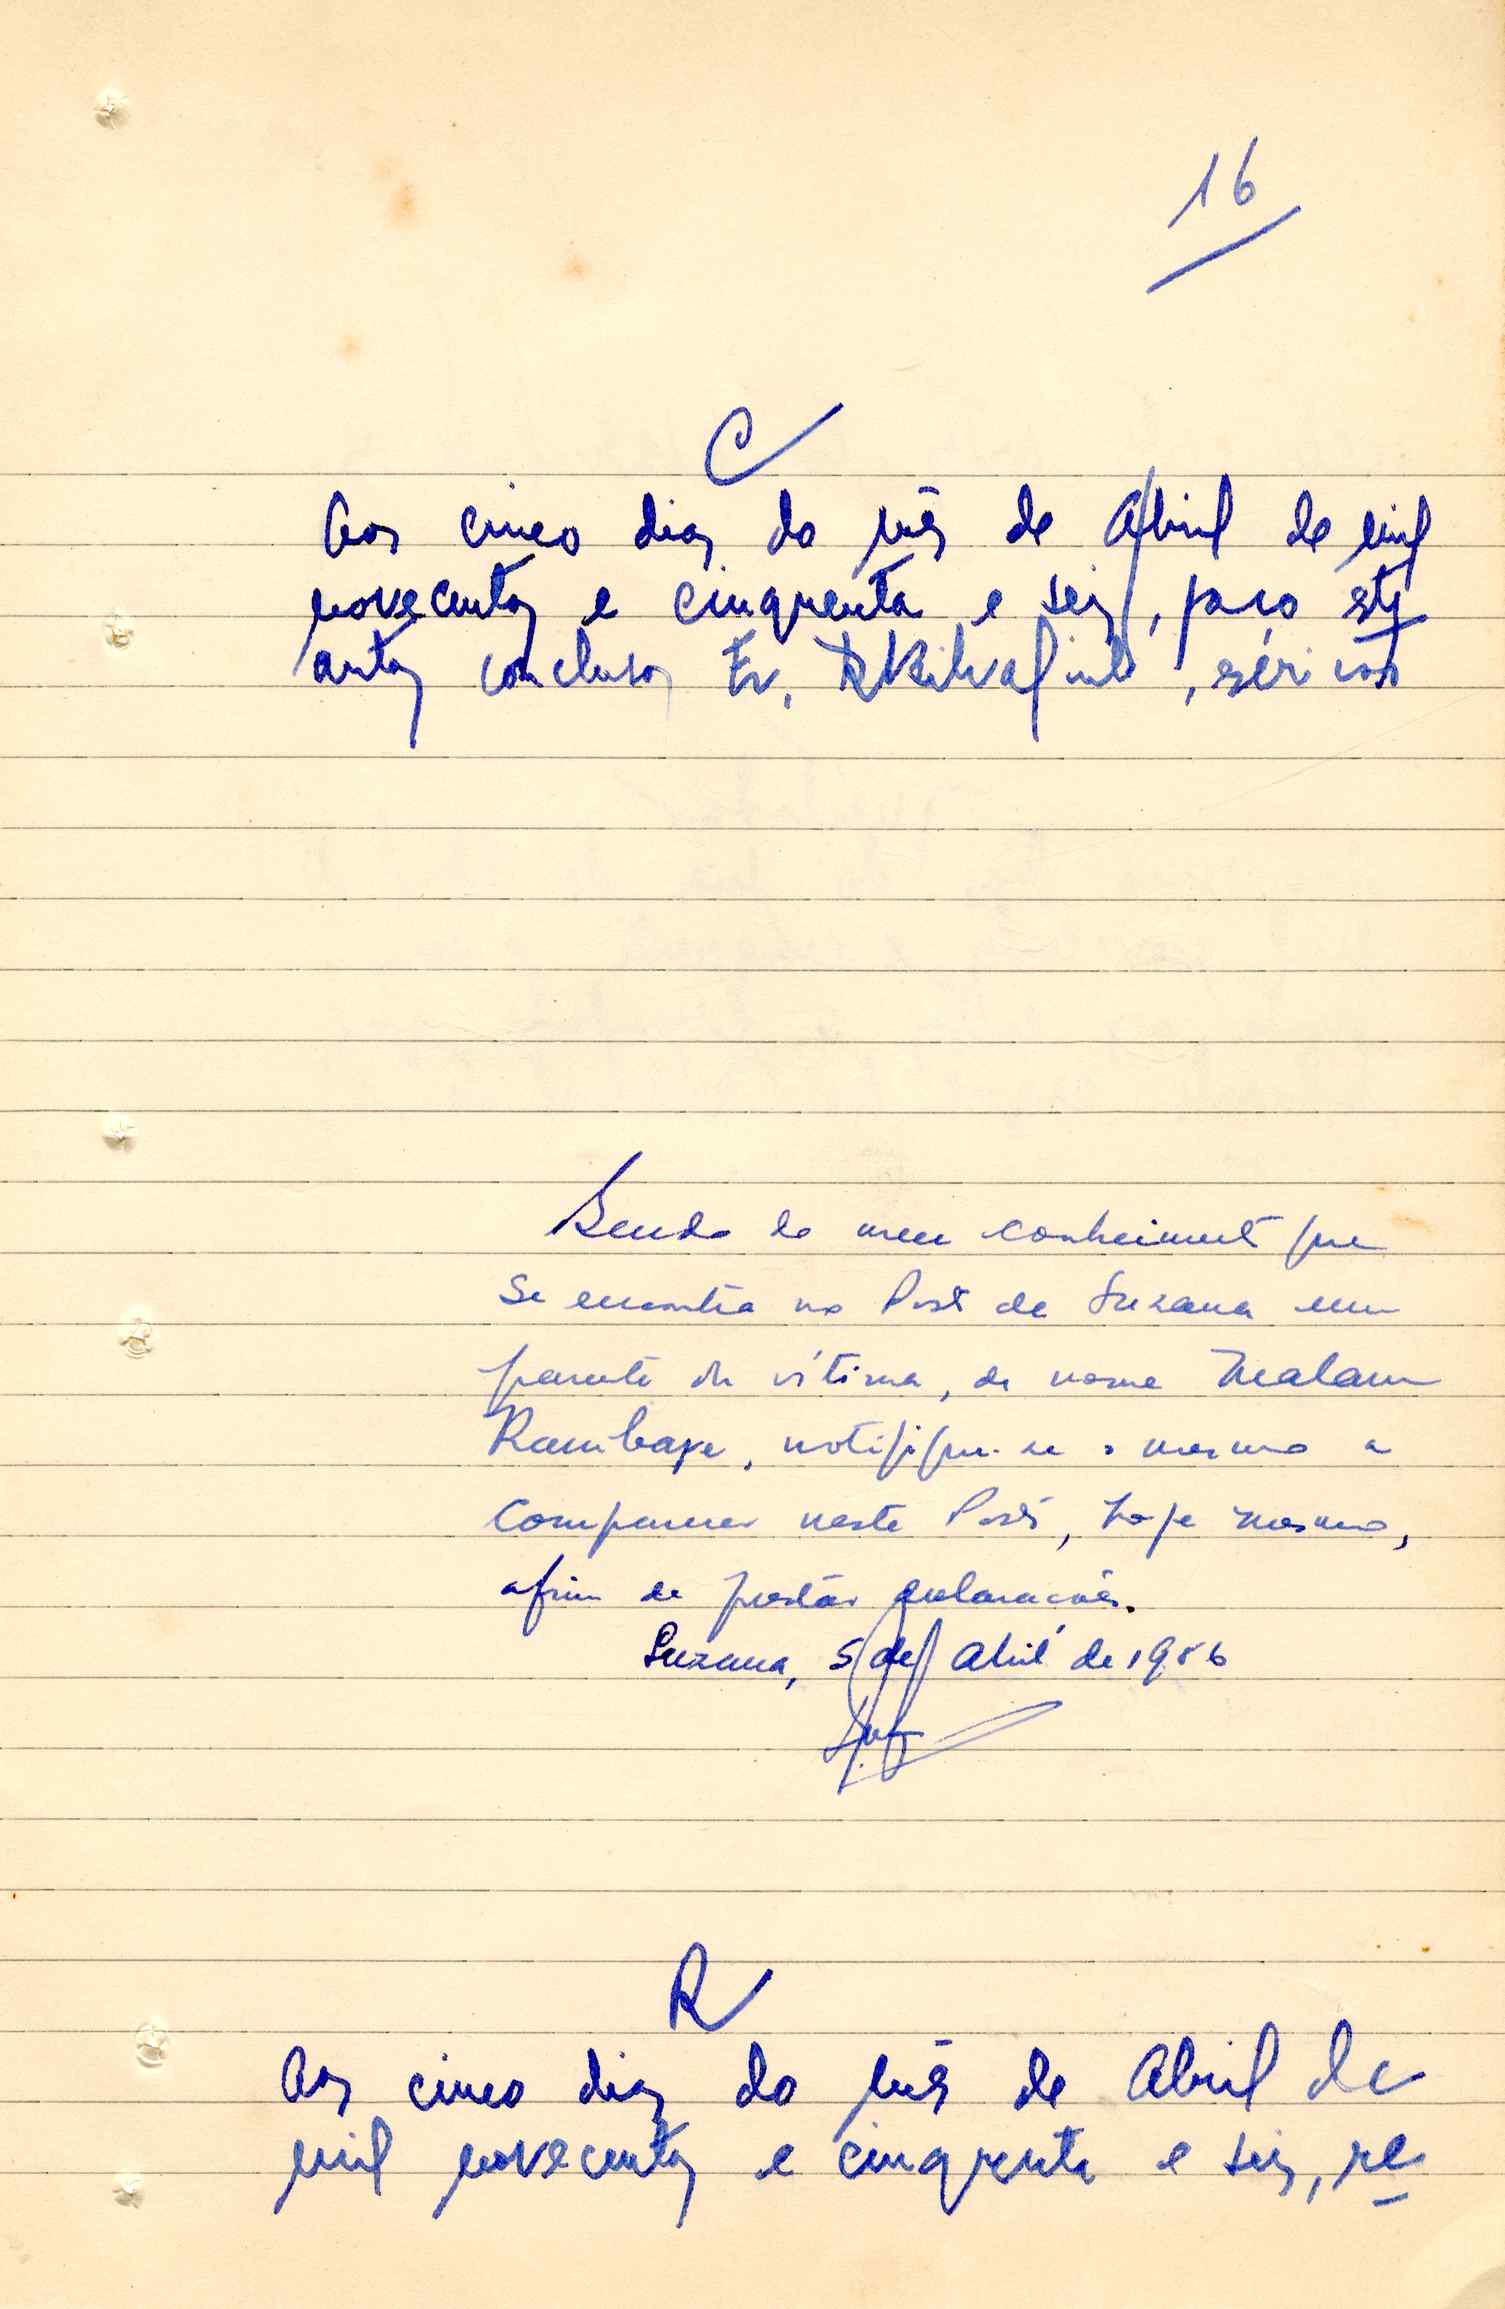 16
C
Aos cinco dias do mês de Abril de mil
novecentos e cinquenta e seis, faço estes
autos conclusos Eu, escrivão
Sendo do meu conhecimento que
se encontra no Posto de Suzana um
parente da vítima, de nome Malam
notifique-se o mesmo a
comparecer neste Posto, hoje mesmo,
afim de prestar declarações.
Suzana, 5 de Abril de 1956
R
Aos cinco dias do mês de Abril de
mil novecentos e cinquenta e seis, re